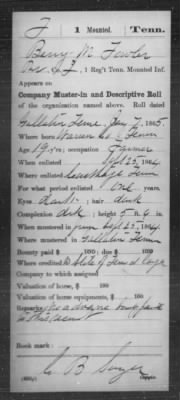 F | 1 Mounted. | Tenn.
Berry M. Fowler
, Co. F, 1 Reg't Tenn. Mounted Inf.
Appears on
Company Muster-in and Descriptive Roll
of the organization named above. Roll dated
Gallatin Tenn, Jany 7, 1865.
Where born Warren Co Tenn
Age 19 y'rs; occupation Farmer
When enlisted Sept 25, 1864
Where enlisted Tenn
For what period enlisted one years.
Eyes dark; hair dark
Complexion dark; height 5 ft. in.
When mustered in from Sept 25, 1864
Where mustered in Gallatin Tenn
Bounty paid $ 100; due $ 100
Where credited State of Tenn
Company to which assigned
Valuation of horse, $ 100
Valuation of horse equipments, $ 100
Remarks:
Book mark:
C B